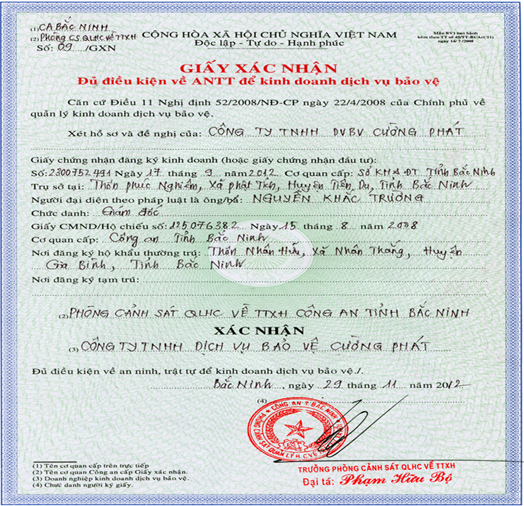 (1) CA BẮC NINH
(2) Phòng CS QLHC VỀ TTXH
Số: 09 /GXN
CỘNG HÒA XÃ HỘI CHỦ NGHĨA VIỆT NAM
Độc lập - Tự do - Hạnh phúc
GIẤY XÁC NHẬN
Đủ điều kiện về ANTT để kinh doanh dịch vụ bảo vệ
Căn cứ Điều 11 Nghị định 52/2008/NĐ-CP ngày 22/4/2008 của Chính phủ về
quản lý kinh doanh dịch vụ bảo vệ.
Xét hồ sơ và đề nghị của: CÔNG TY TNHH DVBV CƯỜNG PHÁT
Giấy chứng nhận đăng ký kinh doanh (hoặc giấy chứng nhận đầu tư):
Số: 2300752491 Ngày 17 tháng 9 năm 2012 Cơ quan cấp: Sở KH & ĐT Tỉnh Bắc Ninh
Trụ sở tại: Thôn Phúc Nghiêm, Xã Phật Tích, Huyện Tiên Du, Tỉnh Bắc Ninh
Người đại diện theo pháp luật là ông/bà: NGUYỄN KHẮC TRƯỜNG
Chức danh: Giám đốc
Giấy CMND/Hộ chiếu số: 125076382 Ngày 15 tháng 8 năm 2008
Cơ quan cấp: Công an Tỉnh Bắc Ninh
Nơi đăng ký hộ khẩu thường trú: Thôn Nhân Hữu, Xã Nhân Thắng, Huyện
Gia Bình, Tỉnh Bắc Ninh
Nơi đăng ký tạm trú:
(2) PHÒNG CẢNH SÁT QLHC VỀ TTXH CÔNG AN TỈNH BẮC NINH
XÁC NHẬN
(3) CÔNG TY TNHH DỊCH VỤ BẢO VỆ CƯỜNG PHÁT
Đủ điều kiện về an ninh, trật tự để kinh doanh dịch vụ bảo vệ./.
Bắc Ninh, ngày 29 tháng 11 năm 2012
(4)
(1) Tên cơ quan cấp trên trực tiếp
(2) Tên cơ quan Công an cấp Giấy xác nhận.
(3) Doanh nghiệp kinh doanh dịch vụ bảo vệ.
(4) Chức danh người ký giấy.
TRƯỞNG PHÒNG CẢNH SÁT QLHC VỀ TTXH
Đại tá: Phạm Hữu Bộ